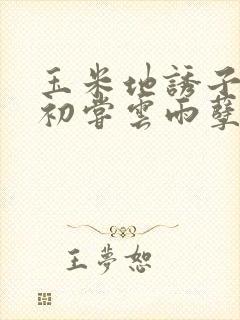 玉米地誘子
初嘗雲雨孽
王夢恕